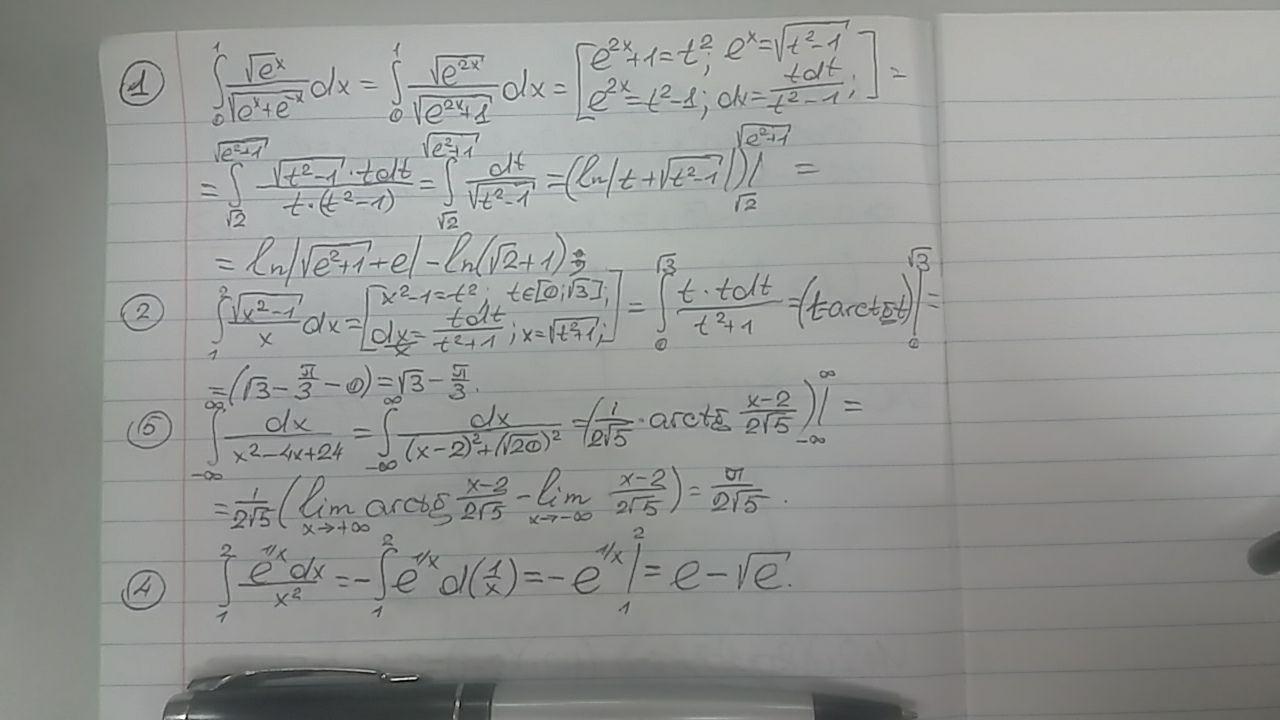 ① ∫₀¹ √eˣ/√(eˣ+e⁻ˣ) dx = ∫₀¹ √e²ˣ/√(e²ˣ+1) dx = [e²ˣ+1=t²; eˣ=√(t²-1) e²ˣ=t²-1; dx=tdt/(t²-1);] =
= ∫_{√2}^{√(e²+1)} √(t²-1)·tdt/(t·(t²-1)) = ∫_{√2}^{√(e²+1)} dt/√(t²-1) = (ln|t+√(t²-1)|)|_{√2}^{√(e²+1)} =
= ln|√(e²+1)+e|-ln(√2+1);
② ∫₁² √(x²-1)/x dx = [x²-1=t²; t∈[0;√3]; dx/x=tdt/(t²+1); x=√(t²+1);] = ∫₀^{√3} t·tdt/(t²+1) = (t arctg t)|₀^{√3} =
= (√3-π/3-0)=√3-π/3.
⑤ ∫_{-∞}^{∞} dx/(x²-4x+24) = ∫_{-∞}^{∞} dx/((x-2)²+(√20)²) = (1/(2√5)·arctg (x-2)/(2√5))|_{-∞}^{∞} =
= 1/(2√5) (lim_{x→+∞} arctg (x-2)/(2√5) - lim_{x→-∞} (x-2)/(2√5)) = π/(2√5).
④ ∫₁² e^{1/x}dx/x² = -∫₁² e^{1/x} d(1/x) = -e^{1/x}|₁² = e-√e.